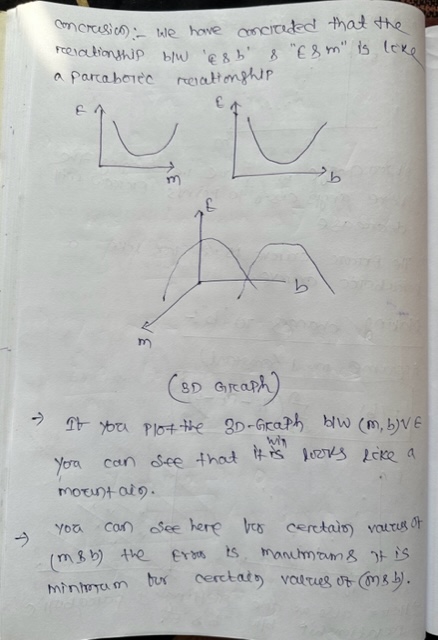 Conclusion:- We have concluded that the
relationship b/w 'E & b' & "E & m" is like
a parabolic relationship
E
E
m
b
E
b
m
(3D Graph)
→ If you plot the 3D-Graph b/w (m, b) V E
you can see that it will looks like a
mountain.
→ You can see here for certain values of
(m & b) the Error is maximum & it is
minimum for certain values of (m & b).